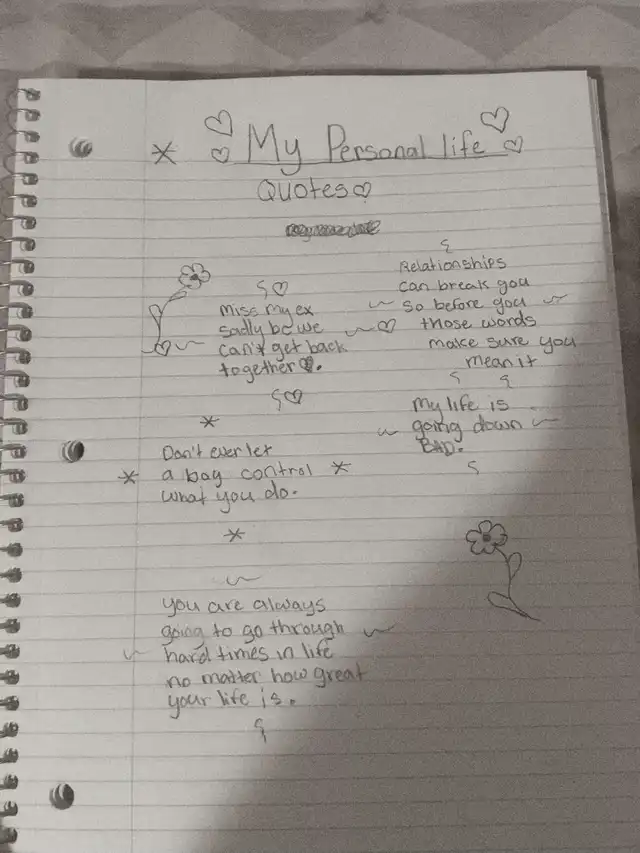 My Personal life
Quotes
Miss my ex
sadly bc we
can't get back
together.
Relationships
can break you
so before you
those words
make sure you
mean it
My life is
going down
BAD.
Don't ever let
a boy control
what you do.
you are always
going to go through
hard times in life
no matter how great
your life is.